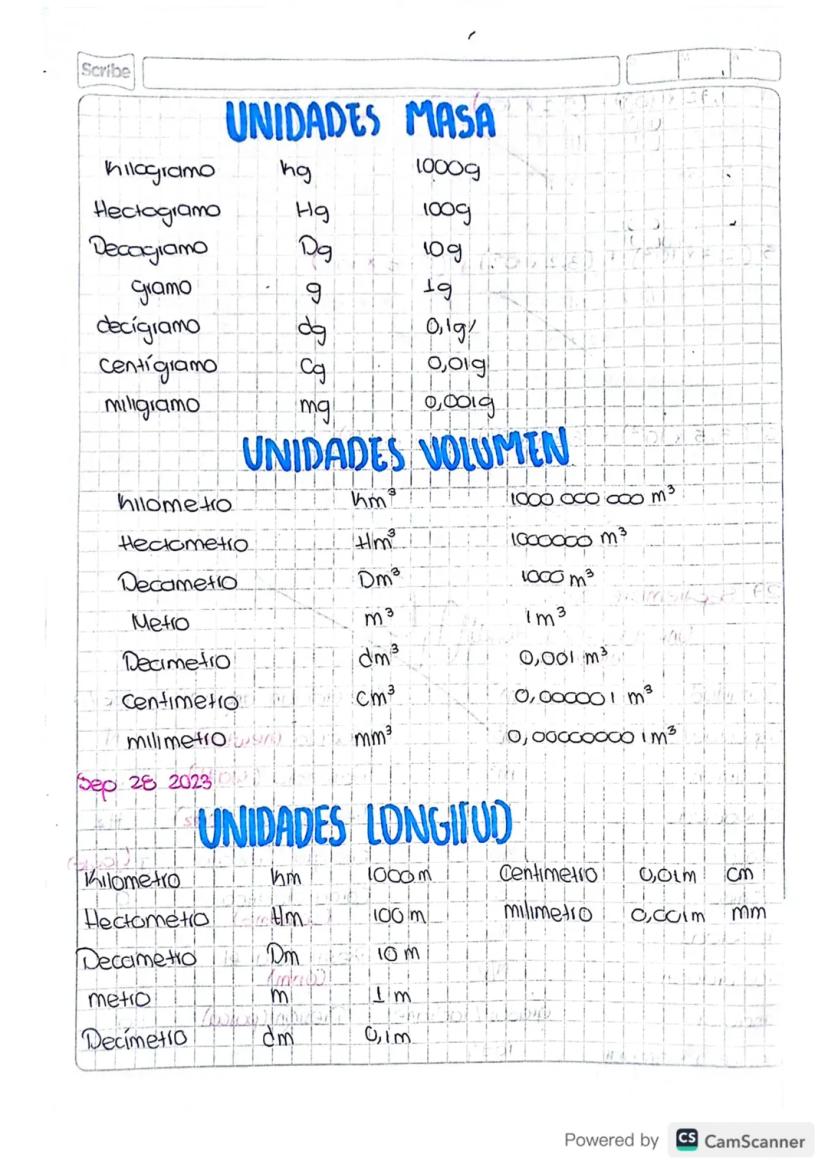 Scribe
UNIDADES MASA
Kilogramo kg 1000g
Hectogramo Hg 100g
Decagramo Dg 10g
gramo g 1g
decígramo dg 0,1g
centígramo Cg 0,01g
miligramo mg 0,001g
UNIDADES VOLUMEN
kilometro km³ 1000.000 000 m³
Hectometro Hm³ 1000000 m³
Decametro Dm³ 1000 m³
Metro m³ 1m³
Decimetro dm³ 0,001 m³
centimetro cm³ 0,000001 m³
milimetro mm³ 0,000000001m³
Sep 28 2023
UNIDADES LONGITUD
Kilometro km 1000m Centimetro 0,01m cm
Hectometro Hm 100 m milimetro 0,001m mm
Decametro Dm 10 m
metro m 1 m
Decímetro dm 0,1m
Powered by CS CamScanner